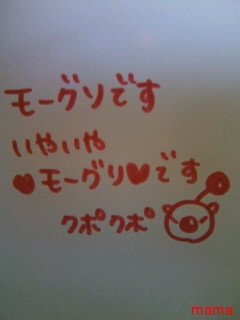 モーグソです
いやいや
♥モーグリ♥です
クポクポ
mama